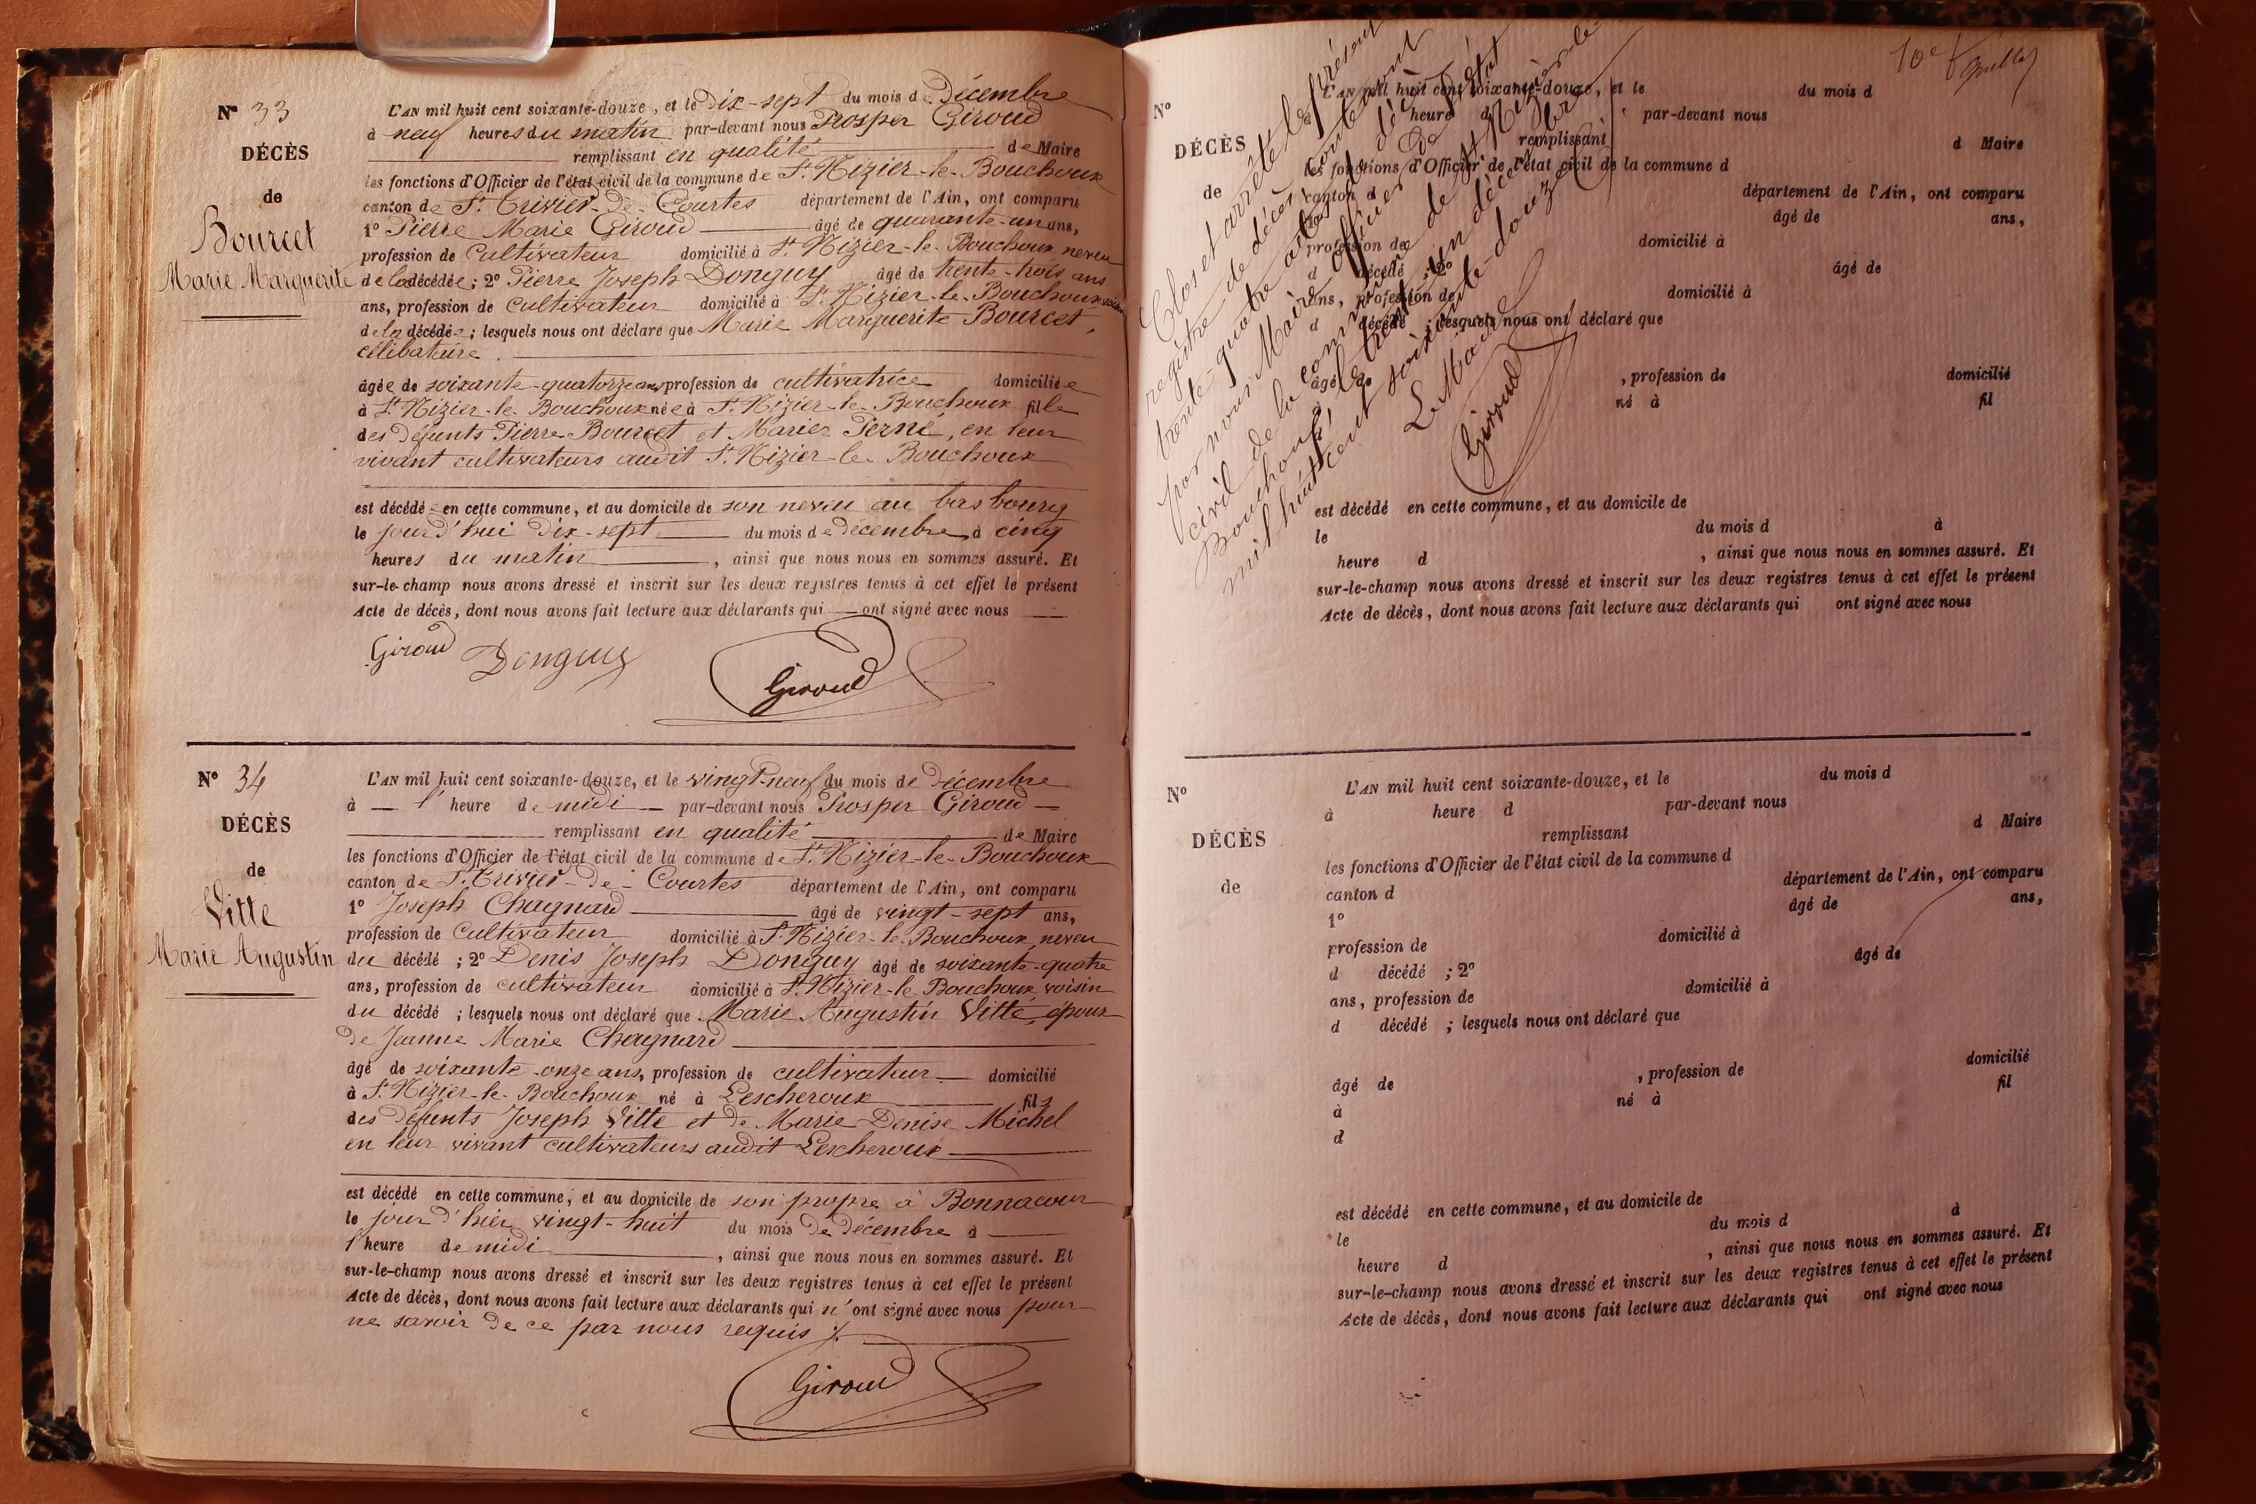 N° 33
DÉCÈS
de
Bourcet
Marie Marguerite
L'AN mil huit cent soixante-douze, et le Dix-sept du mois de Décembre
à neuf heures du matin par-devant nous Prosper Giroud
remplissant en qualité de Maire
les fonctions d'Officier de l'état civil de la commune de St. Nizier-le-Bouchoux
canton de St. Trivier-de-Courtes département de l'Ain, ont comparu
1° Pierre Marie Giroud âgé de quarante-un ans,
profession de Cultivateur domicilié à St. Nizier-le-Bouchoux neveu
de la décédée ; 2° Pierre Joseph Donguy âgé de trente-trois ans
ans, profession de cultivateur domicilié à St. Nizier-le-Bouchoux voisin
de la décédée ; lesquels nous ont déclaré que Marie Marguerite Bourcet,
célibataire.
âgée de soixante-quatorze ans profession de cultivatrice domiciliée
à St. Nizier-le-Bouchoux née à St. Nizier-le-Bouchoux fille
des défunts Pierre Bourcet et Marie Perne, en leur
vivant cultivateurs audit St. Nizier-le-Bouchoux
est décédée en cette commune, et au domicile de son neveu au bas bourg
le jour d'hui dix-sept du mois de décembre à cinq
heures du matin, ainsi que nous nous en sommes assuré. Et
sur-le-champ nous avons dressé et inscrit sur les deux registres tenus à cet effet le présent
Acte de décès, dont nous avons fait lecture aux déclarants qui ont signé avec nous
Giroud Donguy Giroud
N° 34
DÉCÈS
de
Vitte
Marie Augustin
L'AN mil huit cent soixante-douze, et le vingt-neuf du mois de Décembre
à l'heure de midi par-devant nous Prosper Giroud
remplissant en qualité de Maire
les fonctions d'Officier de l'état civil de la commune de St. Nizier-le-Bouchoux
canton de St. Trivier-de-Courtes département de l'Ain, ont comparu
1° Joseph Chagnard âgé de vingt-sept ans,
profession de Cultivateur domicilié à St. Nizier-le-Bouchoux neveu
du décédé ; 2° Denis Joseph Donguy âgé de soixante-quatre
ans, profession de cultivateur domicilié à St. Nizier-le-Bouchoux voisin
du décédé ; lesquels nous ont déclaré que Marie Augustin Vitte, époux
de Jeanne Marie Chagnard
âgé de soixante-onze ans, profession de cultivateur domicilié
à St. Nizier-le-Bouchoux né à Lescheroux fils
des défunts Joseph Vitte et de Marie Denise Michel
en leur vivant cultivateurs audit Lescheroux
est décédé en cette commune, et au domicile de son propre à Bonnacour
le jour d'hier vingt-huit du mois de décembre à
l'heure de midi, ainsi que nous nous en sommes assuré. Et
sur-le-champ nous avons dressé et inscrit sur les deux registres tenus à cet effet le présent
Acte de décès, dont nous avons fait lecture aux déclarants qui n'ont signé avec nous pour
ne savoir de ce par nous requis
Giroud
10e
N°
DÉCÈS
de
L'AN mil huit cent soixante-douze, et le du mois d
à heure d par-devant nous
remplissant d Maire
les fonctions d'Officier de l'état civil de la commune d
canton d département de l'Ain, ont comparu
1° âgé de ans,
profession de domicilié à
d décédé ; 2° âgé de
ans, profession de domicilié à
d décédé ; lesquels nous ont déclaré que
âgé de , profession de domicilié
à né à fil
est décédé en cette commune, et au domicile de
le du mois d à
heure d , ainsi que nous nous en sommes assuré. Et
sur-le-champ nous avons dressé et inscrit sur les deux registres tenus à cet effet le présent
Acte de décès, dont nous avons fait lecture aux déclarants qui ont signé avec nous
Clos et arrêté le présent
registre de décès contenant
trente-quatre actes de décès
par nous Maire officier de l'état
civil de la commune de St Nizier-le-
Bouchoux, le trente-un décembre
mil huit cent soixante-douze
Le Maire
Giroud
N°
DÉCÈS
de
L'AN mil huit cent soixante-douze, et le du mois d
à heure d par-devant nous
remplissant d Maire
les fonctions d'Officier de l'état civil de la commune d
canton d département de l'Ain, ont comparu
1° âgé de ans,
profession de domicilié à
d décédé ; 2° âgé de
ans, profession de domicilié à
d décédé ; lesquels nous ont déclaré que
âgé de , profession de domicilié
à né à fil
d
est décédé en cette commune, et au domicile de
le du mois d à
heure d , ainsi que nous nous en sommes assuré. Et
sur-le-champ nous avons dressé et inscrit sur les deux registres tenus à cet effet le présent
Acte de décès, dont nous avons fait lecture aux déclarants qui ont signé avec nous